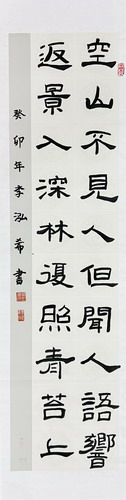 空山不見人但聞人語響
返景入深林復照青苔上
癸卯年李泓希書